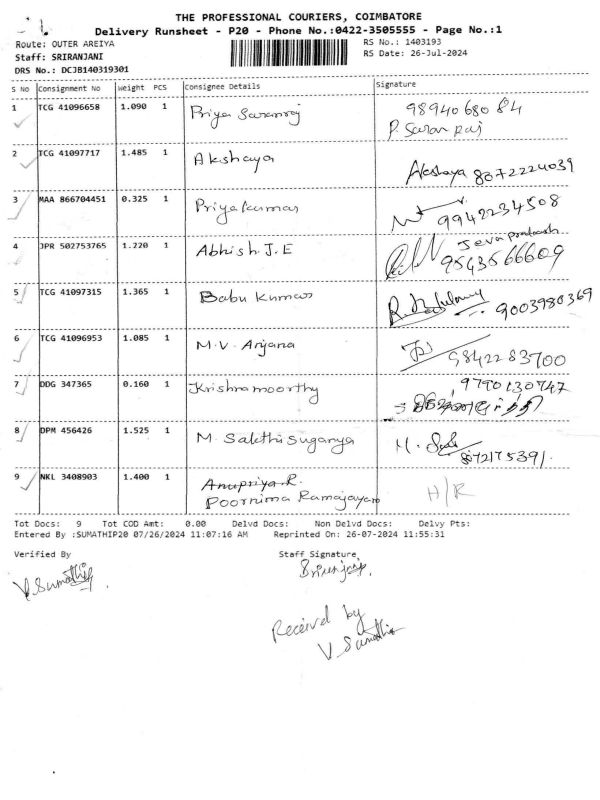 THE PROFESSIONAL COURIERS, COIMBATORE
Delivery Runsheet - P20 - Phone No.:0422-3505555 - Page No.:1
Route: OUTER AREIYA
RS No.: 1403193
Staff: SRIRANJANI
RS Date: 26-Jul-2024
DRS No.: DCJB140319301
S No Consignment No Weight PCS Consignee Details Signature
1 TCG 41096658 1.090 1 Priya Saranraj 98940 680 84
P. Saran raj
2 TCG 41097717 1.485 1 Akshaya Akshaya 8072224039
3 MAA 866704451 0.325 1 Priya kumar 9942234508
4 JPR 502753765 1.220 1 Abhish. J. E Jeva prakash
9543566609
5 TCG 41097315 1.365 1 Babu kumar 9003980369
6 TCG 41096953 1.085 1 M. V. Anjana 9842283700
7 DDG 347365 0.160 1 Krishnamoorthy 9790130747
8 DPM 456426 1.525 1 M. Sakthi suganya
8072175391.
9 NKL 3408903 1.400 1 Anupriya. R. H/R
Poornima Ramajayam
Tot Docs: 9 Tot COD Amt: 0.00 Delvd Docs: Non Delvd Docs: Delvy Pts:
Entered By :SUMATHIP20 07/26/2024 11:07:16 AM Reprinted On: 26-07-2024 11:55:31
Verified By Staff Signature
V. Sumathi Sriranjani.
Received by
V. Sumathi